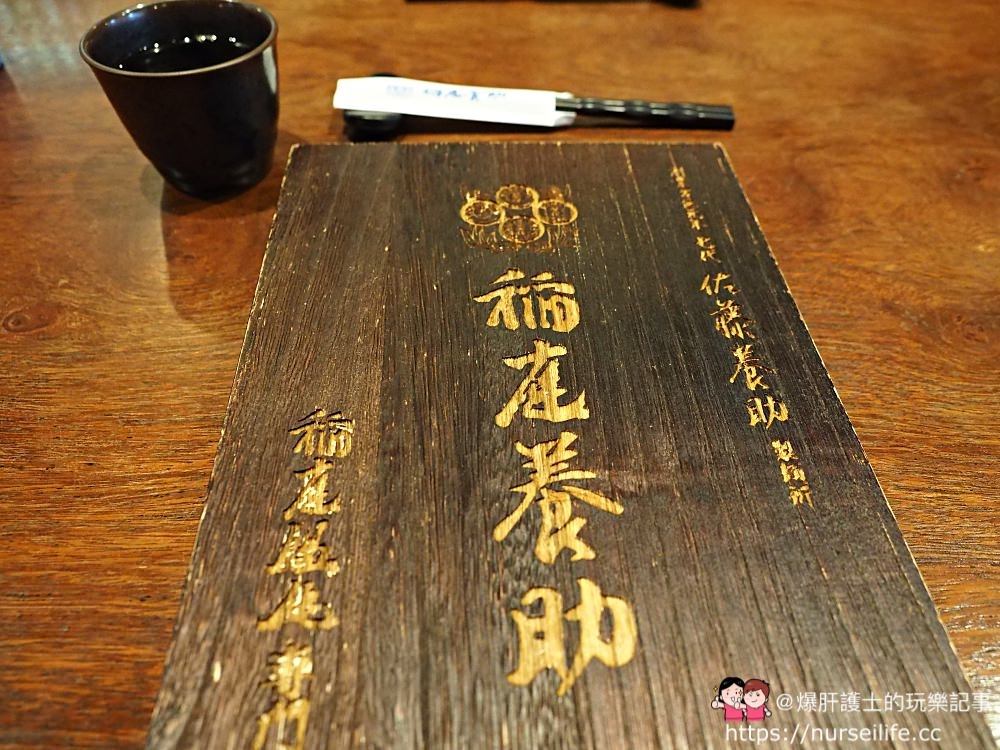 七代 佐藤養助 製麺所
稲庭養助
稲庭饂飩 専門
@爆肝護士的玩樂記事
https://nurseilife.cc